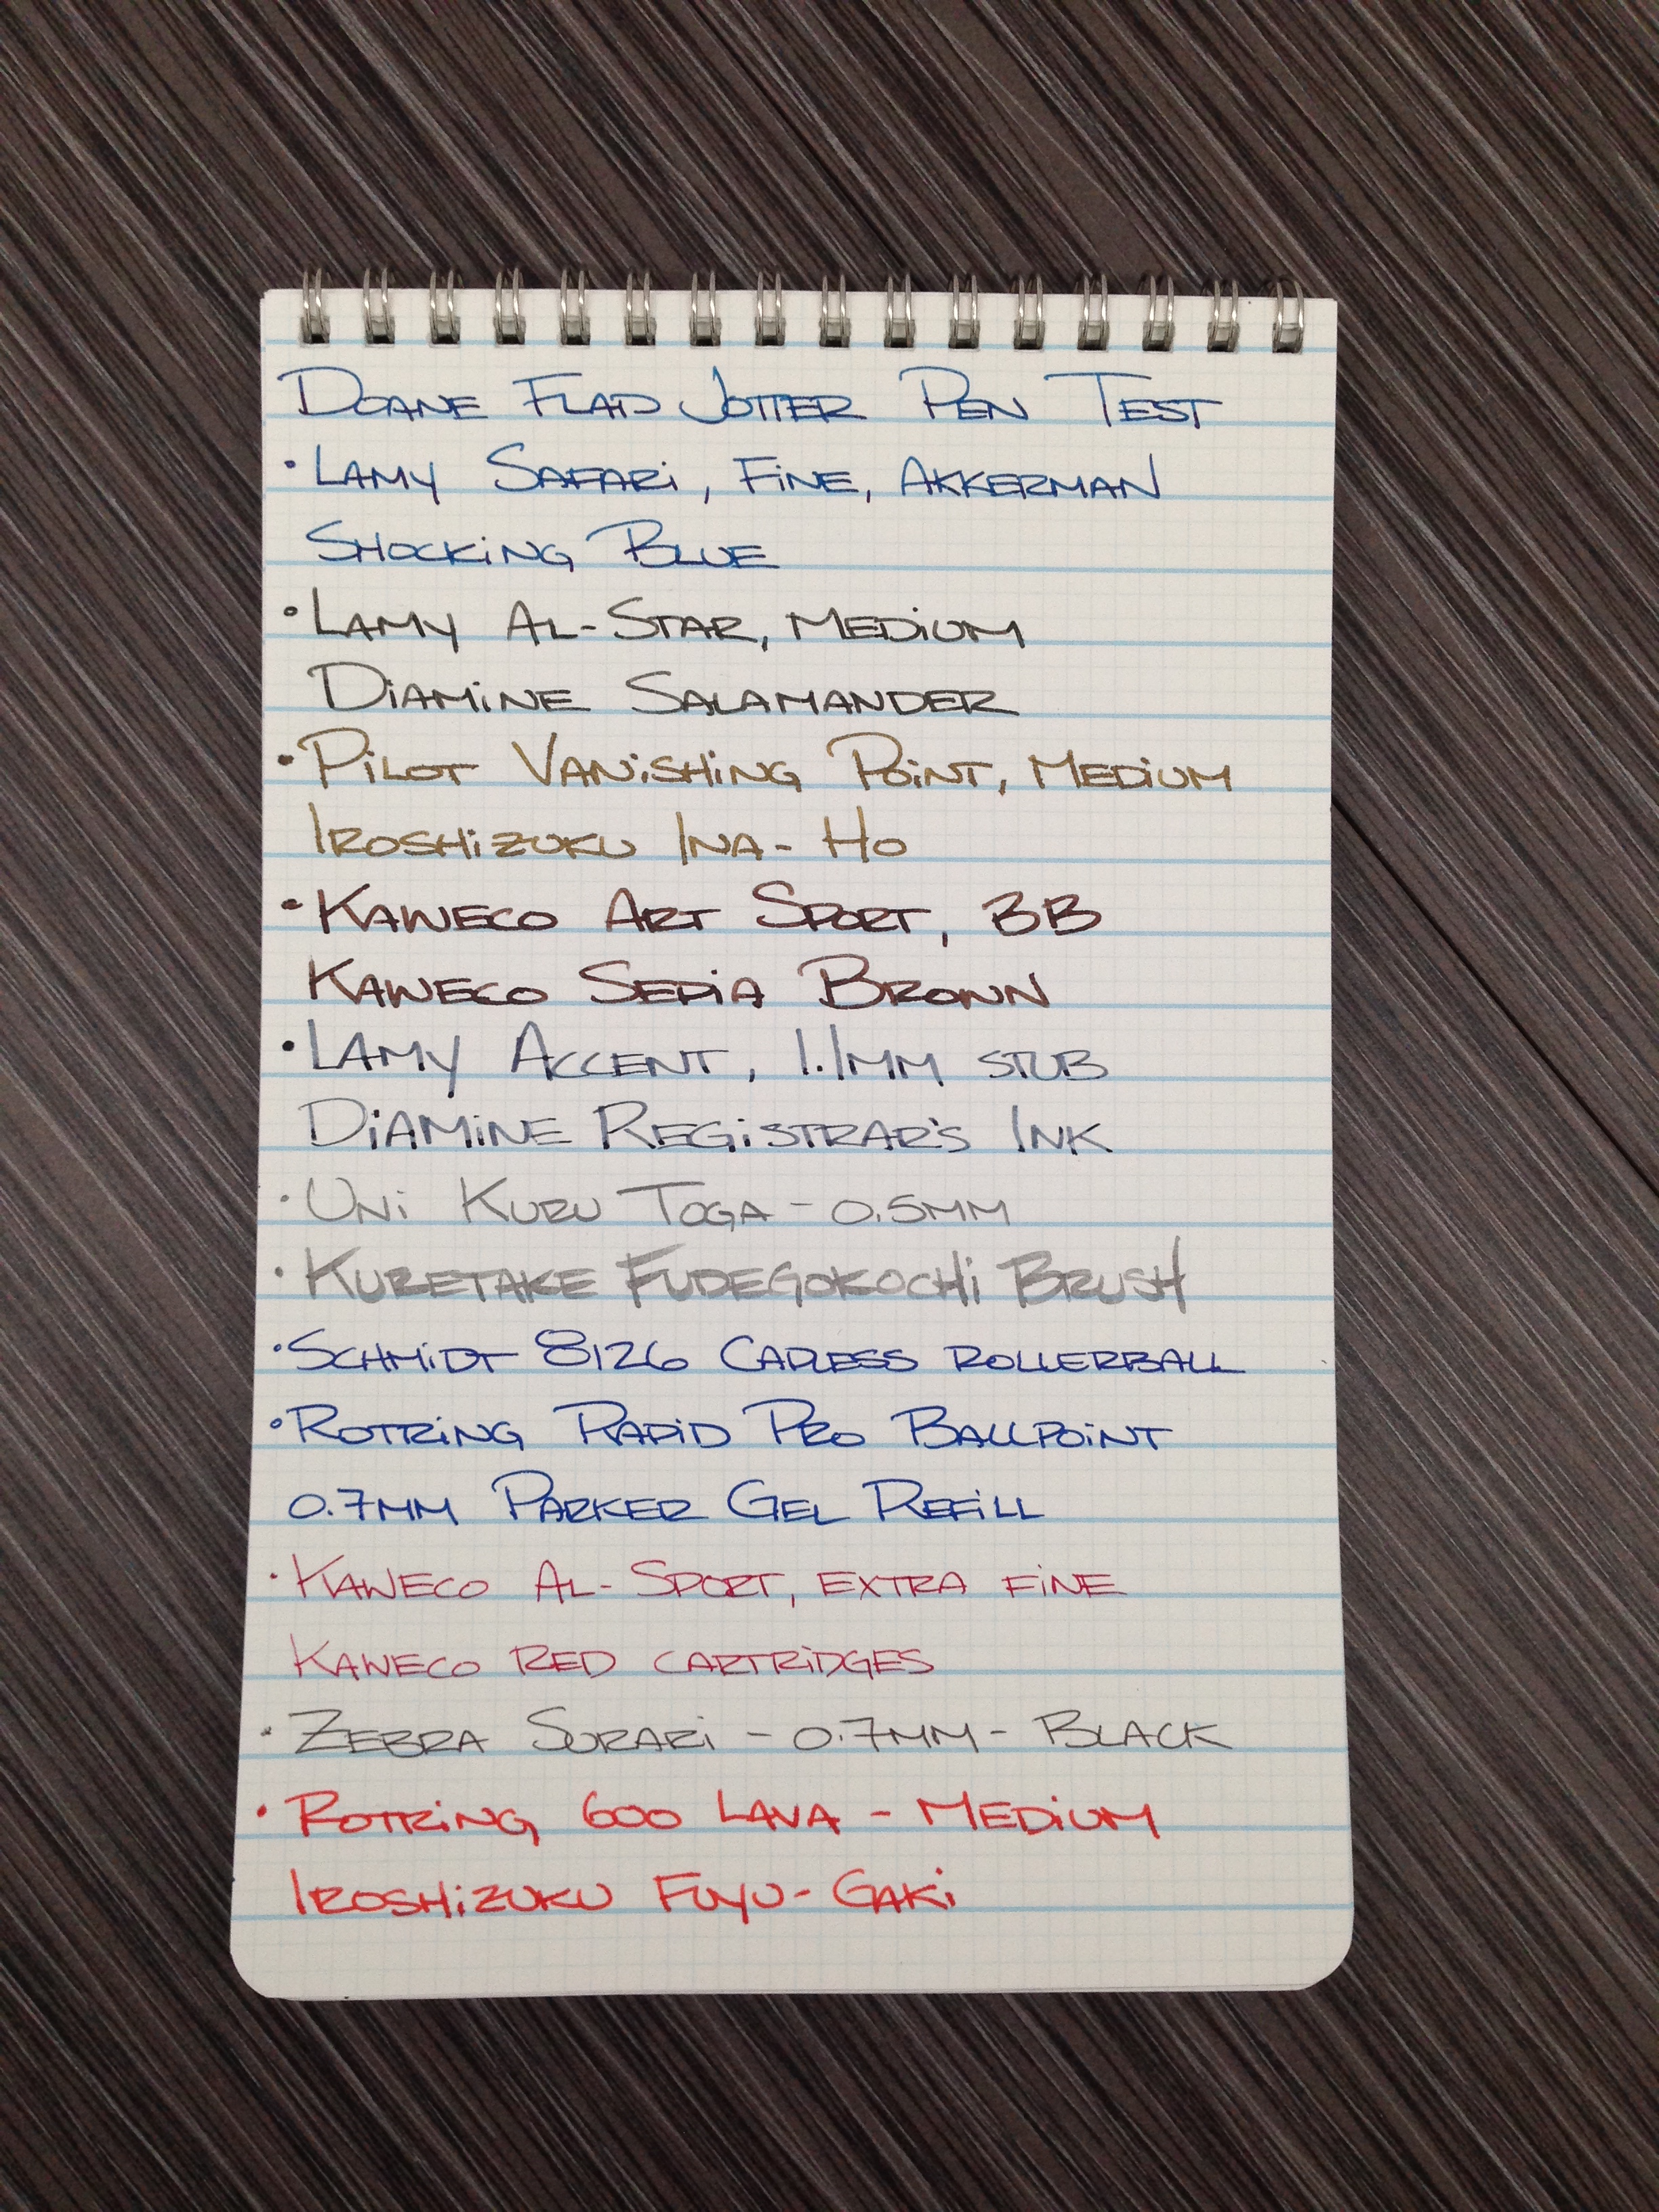 DOANE FLAP JOTTER PEN TEST
• LAMY SAFARI, FINE, AKKERMAN
SHOCKING BLUE
• LAMY AL-STAR, MEDIUM
DIAMINE SALAMANDER
• PILOT VANISHING POINT, MEDIUM
IROSHIZUKU INA-HO
• KAWECO ART SPORT, BB
KAWECO SEPIA BROWN
• LAMY ACCENT, 1.1MM STUB
DIAMINE REGISTRAR'S INK
• UNI KURU TOGA - 0.5MM
• KURETAKE FUDEGOKOCHI BRUSH
• SCHMIDT 8126 CAPLESS ROLLERBALL
• ROTRING RAPID PRO BALLPOINT
0.7MM PARKER GEL REFILL
• KAWECO AL-SPORT, EXTRA FINE
KAWECO RED CARTRIDGES
• ZEBRA SURARI - 0.7MM - BLACK
• ROTRING 600 LAVA - MEDIUM
IROSHIZUKU FUYU-GAKI